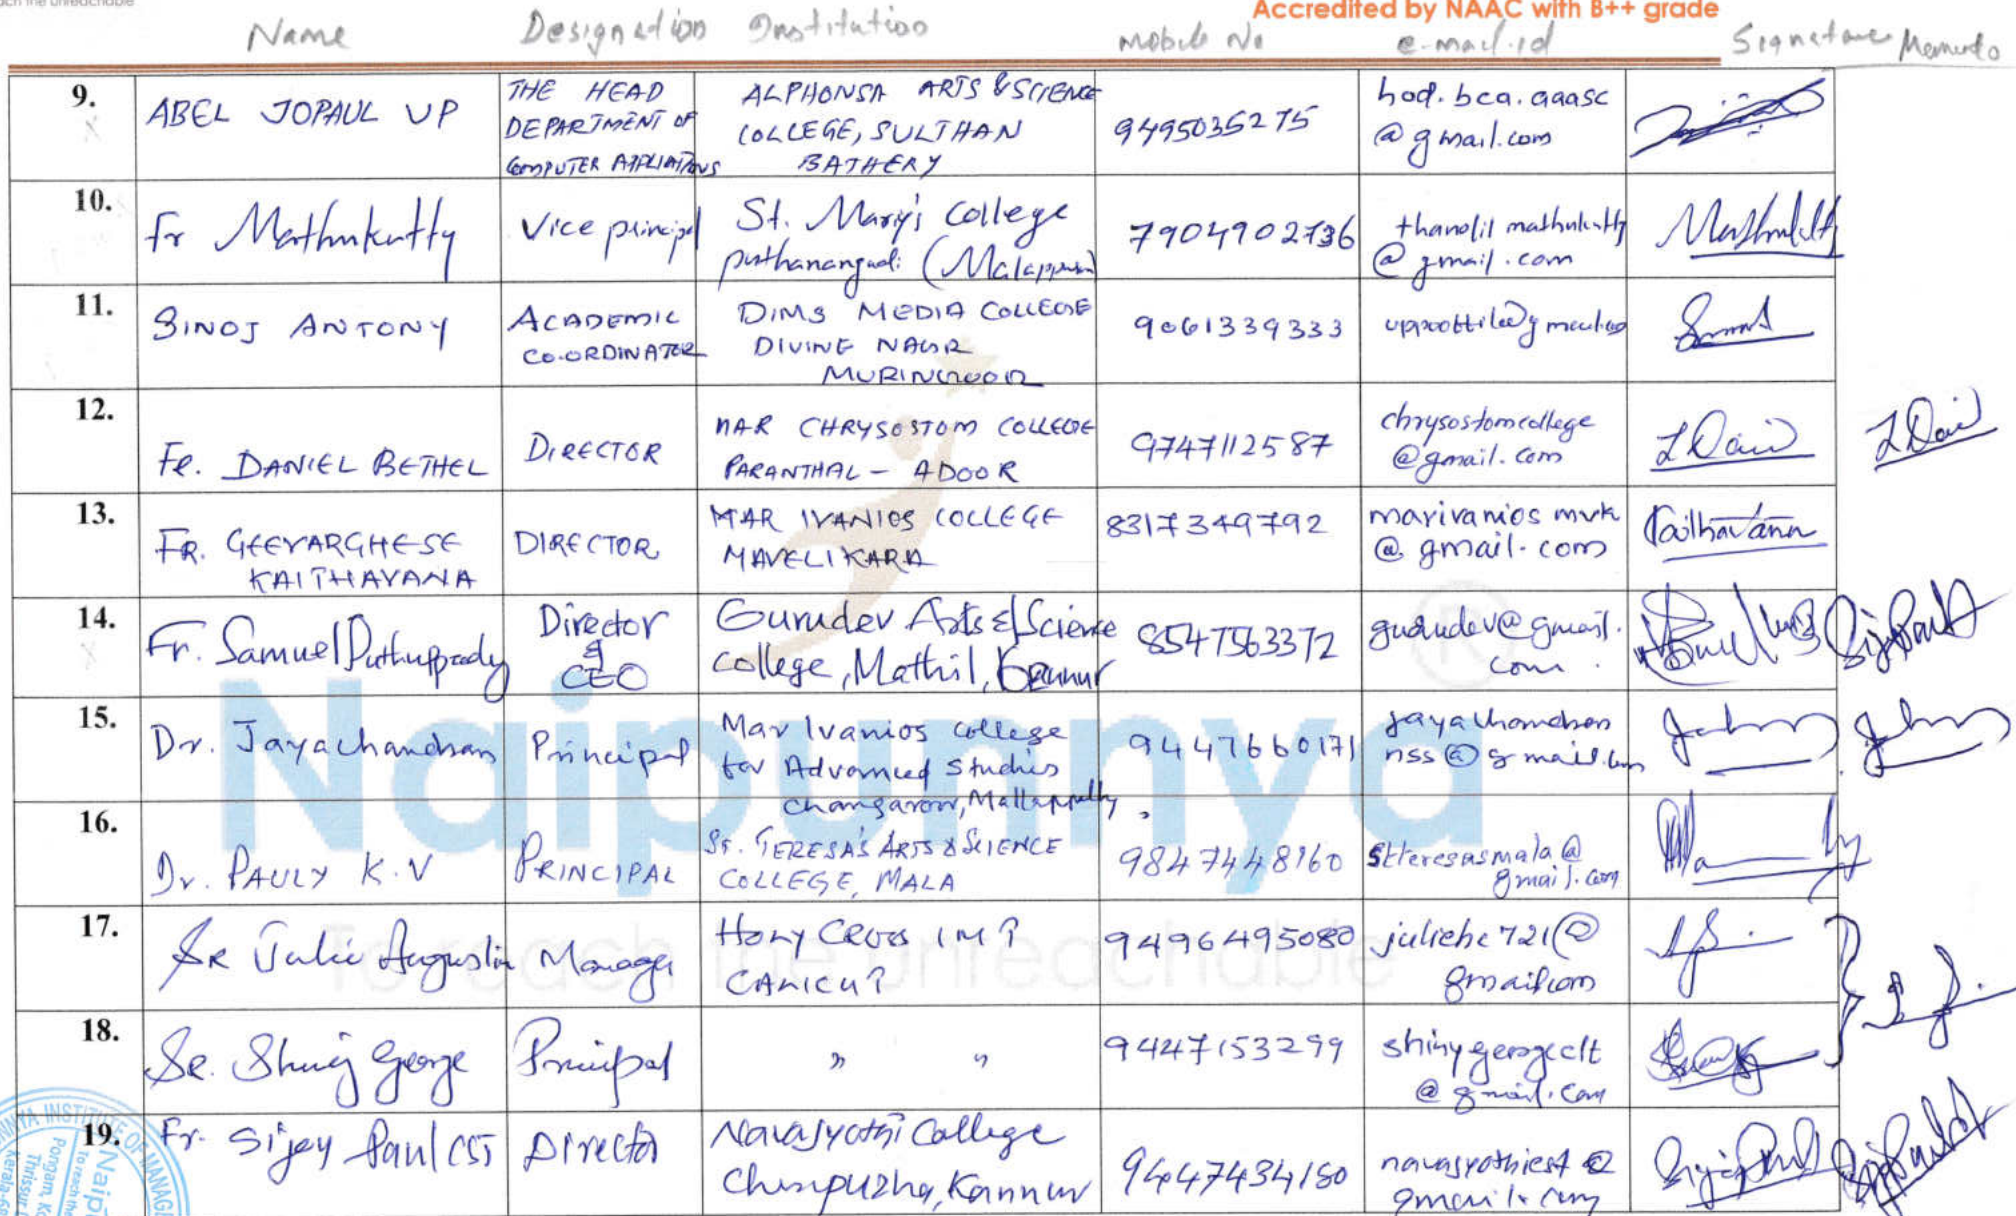 Accredited by NAAC with B++ grade
Name Designation Institution Mobile No e-mail.id Signature Memento
9. ABEL JOPAUL VP THE HEAD DEPARTMENT OF COMPUTER APPLIATIONS ALPHONSA ARTS & SCIENCE COLLEGE, SULTHAN BATHERY 9495035275 hod.bca.aaasc @gmail.com
10. Fr Mathukutty Vice principal St. Mary's College puthanangadi (Malappuram) 7904902736 @gmail.com
11. SINOJ ANTONY ACADEMIC CO-ORDINATOR DIMS MEDIA COLLEGE DIVINE NAGAR MURINGOOR 9061339333
12. Fr. DANIEL BETHEL DIRECTOR MAR CHRYSOSTOM COLLEGE PARANTHAL - ADOOR 9747112587 chrysostomcollege @gmail.com
13. FR. GEEVARGHESE KAITHAVANA DIRECTOR MAR IVANIOS COLLEGE MAVELIKARA 8317349792 marivanios mvk @gmail.com
14. Fr. Samuel Puthuppady Director & CEO Gurudev Arts & Science College, Mathil, Kannur 8547563372 gurudev@gmail.com.
15. Dr. Jayachandran Principal Mar Ivanios College for Advanced Studies Mallappally 9447660171 jayachandran nss@gmail.com
16. Dr. PAULY K.V PRINCIPAL St. TERESA'S ARTS & SCIENCE COLLEGE, MALA 9847448160 stteresasmala@gmail.com
17. Sr Julie Augustin Manager HOLY CROSS IMT CALICUT 9496495080 juliehc721@gmail.com
18. Sr. Shiny George Principal " " 9447153299 shinygeorgeclt @gmail.com
19. Fr. Sijoy Paul CST Director Navajyothi College Cherupuzha, Kannur 9447434180
Naipunnya
To reach the unreachable